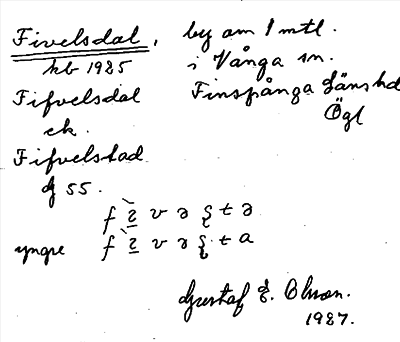 Fivelsdal, by om 1 mtl.
kb 1925 i Vånga sn.
Fifvelsdal Finspånga länshd
ek. Ögl
Fifvelstad
dj 55.
yngre
Gustaf E. Olsson.
1927.